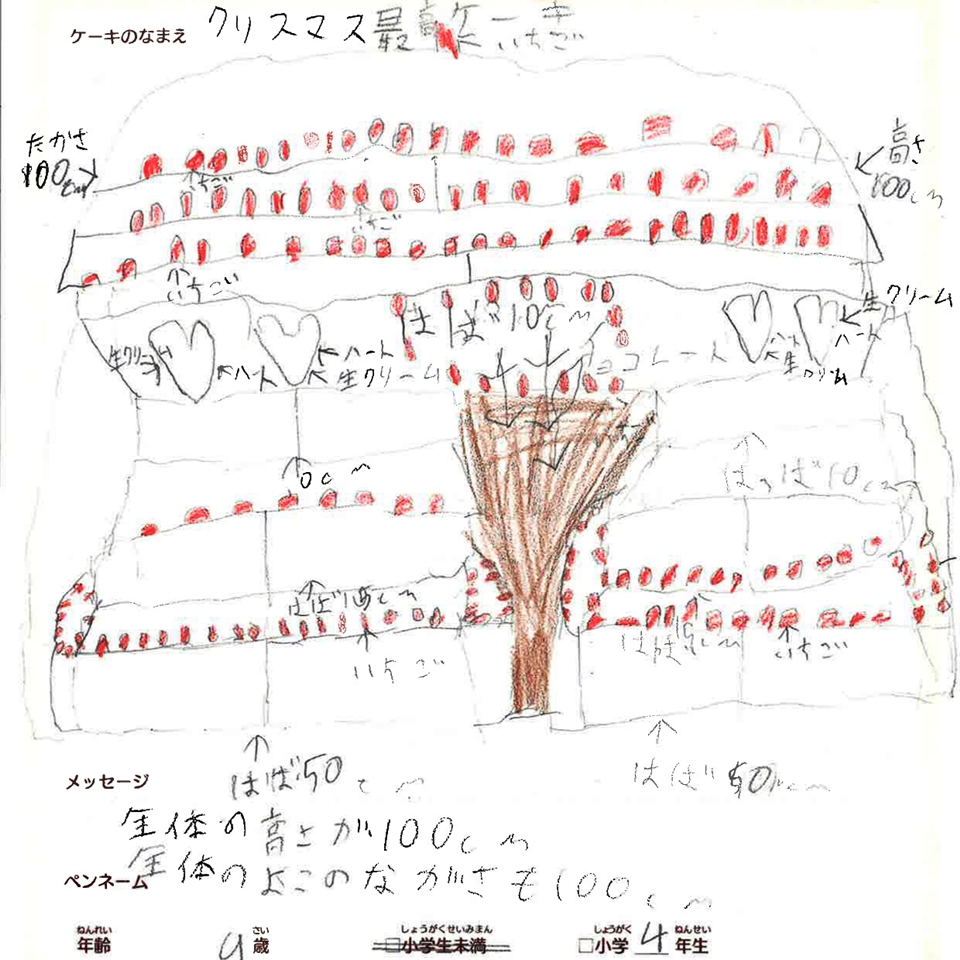 ケーキのなまえ クリスマス最高ケーキ
いちご
たかさ
100cm
高さ
100cm
いちご
いちご
いちご
はば10cm
生クリーム
ハート
生クリーム
ハート
ハート
生クリーム
チョコレート
ハート
生クリーム
いちご
0cm
はば10cm
はば10cm
いちご
はば
cm
いちご
はば50cm
はば50cm
メッセージ
全体の高さが100cm
全体のよこのながさも100cm
ペンネーム
ねんれい
年齢 9歳
さい
しょうがくせいみまん
□小学生未満
しょうがく ねんせい
□小学 4 年生